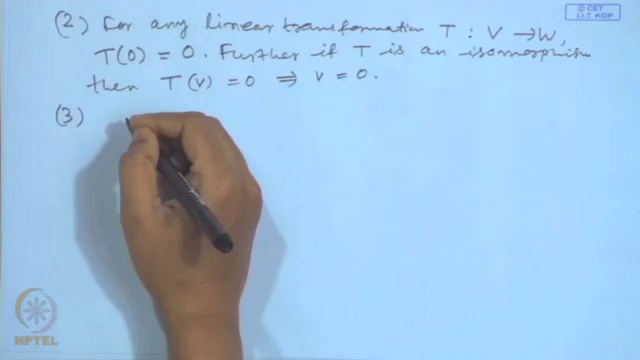 © CET
I.I.T. KGP
(2) For any linear transformation T : V → W,
T(0) = 0. Further if T is an isomorphism
then T(v) = 0 ⇒ v = 0.
(3)
NPTEL